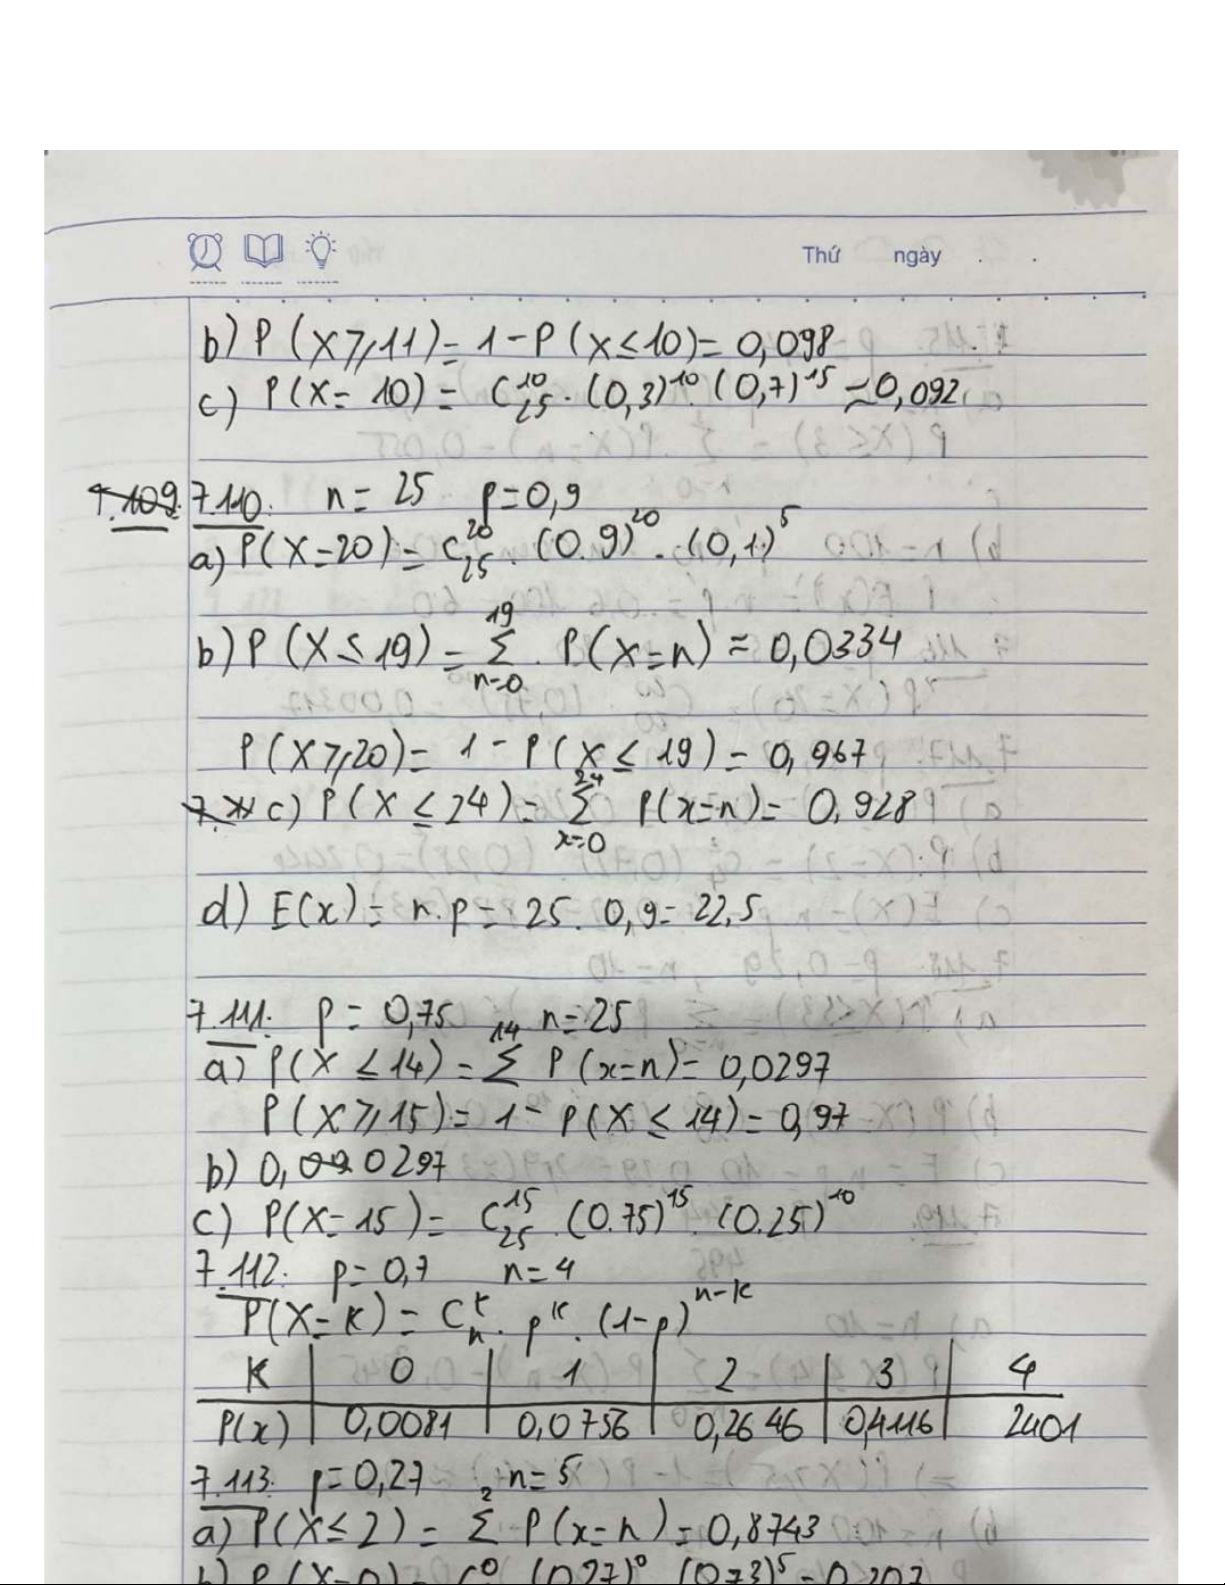 Thứ ngày . .
b) P(X⩾11) = 1-P(x≤10) = 0,098
c) P(X= 10) = C₂₅¹⁰ . (0,3)¹⁰ . (0,7)¹⁵ ≃ 0,092
7.109. 7.110. n= 25 p=0,9
a) P(X=20) = C₂₅²⁰ . (0.9)²⁰ . (0,1)⁵
19
b) P(X≤19) = Σ P(x=n) ≈ 0,0334
n=0
P(X⩾20) = 1 - P(X ≤ 19) = 0,967
24
c) P(X ≤ 24) = Σ P(x=n) = 0,928
x=0
d) E(x) = n.p = 25. 0,9= 22,5
7.111. p= 0,75 n=25
14
a) P(X ≤14) = Σ P(x=n) = 0,0297
P(X⩾15) = 1 - P(X ≤ 14) = 0,97
b) 0,0297
c) P(X=15) = C₂₅¹⁵ . (0.75)¹⁵ . (0.25)¹⁰
7.112. p= 0,7 n=4
P(X=K) = Cₙᵏ . pᵏ . (1-p)ⁿ⁻ᵏ
K 0 1 2 3 4
P(x) 0,0081 0,0756 0,2646 0,4116 2401
7.113. p=0,27 n=5
2
a) P(X≤2) = Σ P(x=n) = 0,8743
b) P(X=0) = C⁰ (0,27)⁰ (0,73)⁵ = 0,207